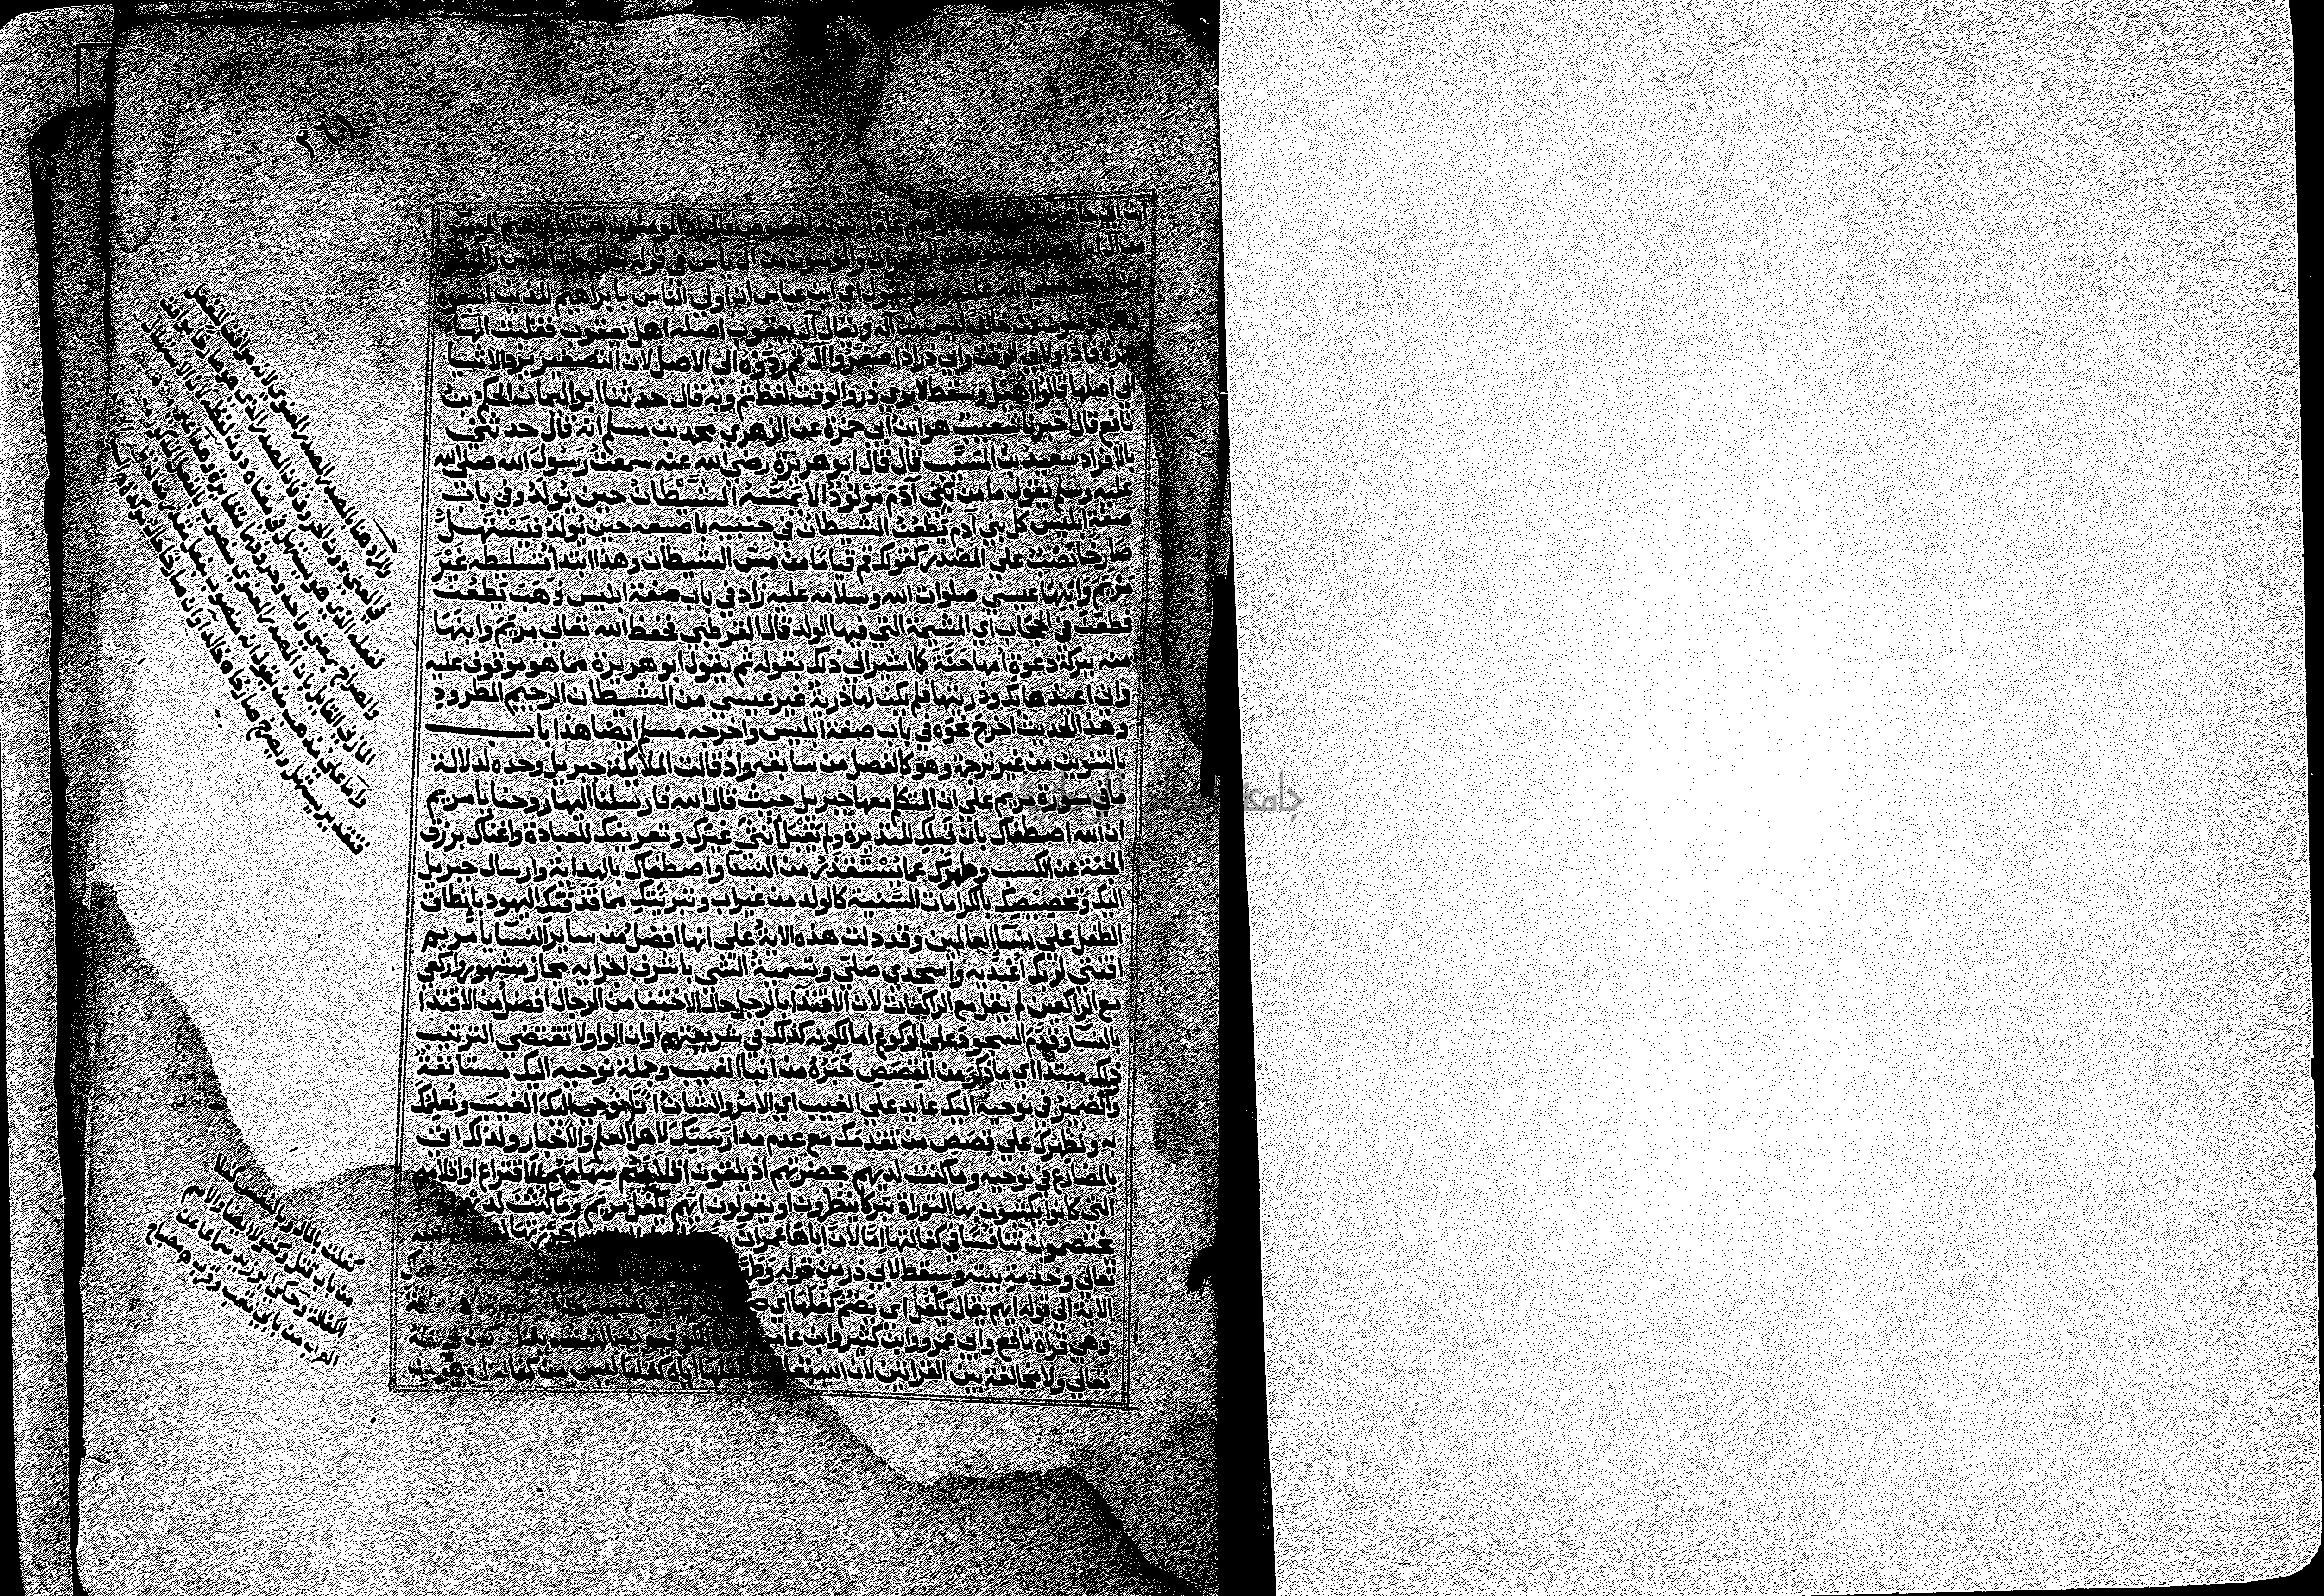 ٢٦١
ابن ابي حاتم وآل عمران كآل ابراهيم عام اريد به الخصوص فالمراد المومنون من آل ابراهيم المومنون
من آل ابراهيم والمومنون من آل عمران والمومنون من آل ياس في قوله تعالي وان الياس والمومنون
من آل محمد صلي الله عليه وسلم يقول اي ابن عباس ان اولي الناس بابراهيم للذين اتبعوه
وهم المومنون فمن خالفه ليس من آله ويقال آل يعقوب اصله اهل يعقوب فقلبت الهاء
همزة فاذا ولابي الوقت وابي ذر اذا صغروا آل ثم ردوه الي الاصل لان التصغير يرد الاشيا
الي اصلها قالوا اهيل وسقط لابوي ذر والوقت لفظ ثم وبه قال حدثنا ابو اليمان الحكم بن
نافع قال اخبرنا شعيب هو ابن ابي حمزة عن الزهري محمد بن مسلم انه قال حدثني
بالافراد سعيد بن المسيب قال قال ابو هريرة رضي الله عنه سمعت رسول الله صلي الله
عليه وسلم يقول ما من بني آدم مولود الا يمسه الشيطان حين يولد وفي باب
صفة ابليس كل بني آدم يطعن الشيطان في جنبيه باصبعه حين يولد فيستهل
صارخا نصب علي المصدر كقولك قم قياما من مس الشيطان وهذا ابتدا تسليطه غير
مريم وابنها عيسي صلوات الله وسلامه عليه زاد في باب صفة ابليس ذهب يطعن
فطعن في الحجاب اي المشيمة التي فيها الولد قال القرطبي فحفظ الله تعالي مريم وابنها
منه ببركة دعوة امها حنة كما اشير الي ذلك بقوله ثم يقول ابو هريرة مما هو موقوف عليه
واني اعيذها بك وذريتها فلم يكن لها ذرية غير عيسي من الشيطان الرجيم المطرود
وهذا الحديث اخرج نحوه في باب صفة ابليس واخرجه مسلم ايضا هذا باب
بالتنوين من غير ترجمة وهو كالفصل من سابقه واذ قالت الملايكة جبريل وحده لدلالة
ما في سورة مريم علي ان المتكلم معها جبريل حيث قال الله فارسلنا اليها روحنا يا مريم
ان الله اصطفاك بان قبلك للنذيرة ولم يقبل انثي غيرك وتعريفك للعبادة واغناك برزق
الجنة عن الكسب وطهرك عما يستقذر من النسا واصطفاك بالهداية وارسال جبريل
اليك وتخصيصك بالكرامات السنية كالولد من غير اب وتبريتك مما قذفتك اليهود بانطاق
الطفل علي نسآ العالمين وقد دلت هذه الاية علي انها افضل من ساير النسآ يا مريم
اقنتي لربك اعبديه واسجدي صلي وتسمية الشي باشرف اجزايه مجاز مشهور واركعي
مع الراكعين لم يقل مع الراكعات لان الاقتدآ بالرجل حال الاختفا من الرجال افضل من الاقتدا
بالنسآ وقدم السجود علي الركوع اما لكونه كذلك في شريعتهم او ان الواو لا تقتضي الترتيب
ذلك مبتدا اي ما ذكر من القصص خبره من انبا الغيب وجملة نوحيه اليك مستانفة
والضمير في نوحيه اليك عايد علي الغيب اي الامر والشان انا نوحي اليك الغيب ونعلمك
به ونظهرك علي قصص من تقدمك مع عدم مدارستك لاهل العلم والاخبار ولذلك اتي
بالمضارع في نوحيه وما كنت لديهم بحضرتهم اذ يلقون اقلامهم سهامهم للاقتراع او اقلامهم
التي كانوا يكتبون بها التوراة تبركا ينظرون او يقولون ايهم يكفل مريم وما كنت لديهم اذ
يختصمون تنافسا في كفالتها اما لان اباها عمران
تعالي وخدمة بيته وسقط لابي ذر من قوله وطهرك
الاية الي قوله ايهم يقال يكفل اي يضم كفلها اي
وهي قراة نافع وابي عمرو وابن كثير وابن عامر الكوفيون بالتشديد
تعالي ولا مخالفة بين القراتين لان الله تعالي لما كفلها اياه كفلها ليس من كفالة
والمراد هنا بالمصدر المصدر المعنوي لانه موافقت للفعل
في المعني دون الحروف فان المصدر الذي هو صارخا موافق
لفعله الذي هو يستهل في معناه دون لفظه لان الاستهلال
والصراخ بمعني واحد وحروفهما متغايرة
وانه منصوب بفعل مقدر من لفظه
فتقدير يستهل ويصرخ صارخا
كفلت بالمال وبالنفس كفلا
من باب قتل وكفولا ايضا والاسم
الكفالة وحكي ابو زيد سماعا عن
العرب من بابي تعب وقرب مصباح